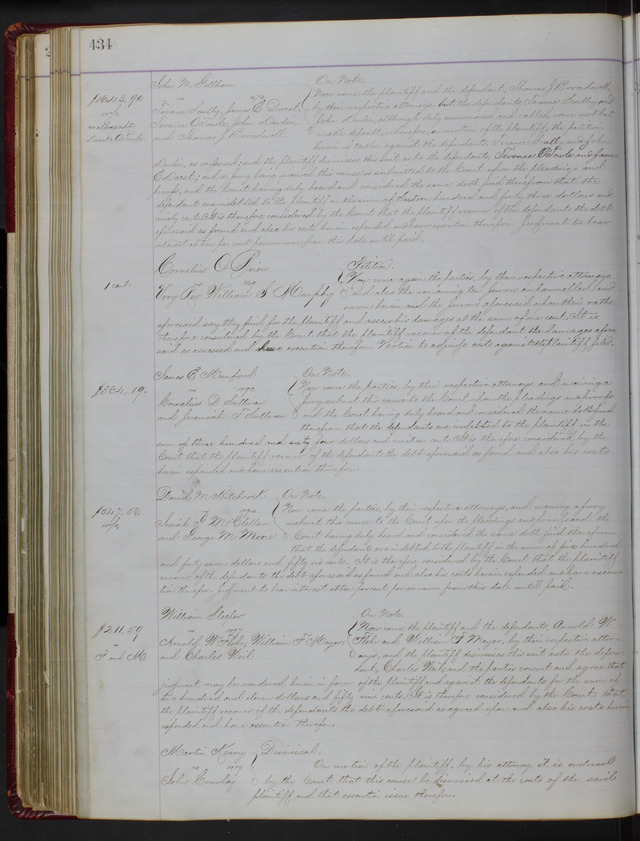 434
John M. Gillham
On Note.
$1643.90
Now come the plaintiff and the defendant, Thomas J. Broadwell,
by their respective attorneys, but the defendants Terence Scully and
John Devlin, although duly summoned and called, come not but
and Thomas J. Broadwell
make default; wherefore, on motion of the plaintiff, the petition
herein is taken against the defendants, Terence Scully and John
Devlin, as confessed; and the plaintiff dismisses this suit as to the defendants Terence O'Toole and James
E. Dorst; and a jury being waived this cause is submitted to the Court upon the pleadings and
proofs, and the Court having duly heard and considered the same doth find therefrom that the
defendants are indebted to the plaintiff in the sum of Sixteen hundred and forty three dollars and
ninety cents. It is therefore considered by the Court that the plaintiff recover of the defendants the debt
aforesaid as found and also his costs herein expended and have execution therefor. Judgment to bear
interest at ten per cent per annum from this date until paid.
Cornelius O. Brien
Petition.
1 cent.
Now come again the parties, by their respective attorneys
Very Rev. William S. Murphy
and also the remaining ten jurors empannelled and
sworn herein and the jurors aforesaid upon their oaths
aforesaid say they find for the plaintiff and assess his damages at the sum of one cent. It is
therefore considered by the Court that the plaintiff recover of the defendant the damages afore
said as assessed and have execution therefor. Motion to adjudge costs against plaintiff filed.
James E. Munford
On Note.
$364.19.
Now come the parties, by their respective attorneys, and waiving a
Cornelius D. Sullivan
jury submit this cause to the Court upon the pleadings and proofs
and Jeremiah T. Sullivan
and the Court having duly heard and considered the same doth find
therefrom that the defendants are indebted to the plaintiff in the
sum of three hundred and sixty four dollars and nineteen cents. It is therefore considered by the
Court that the plaintiff recover of the defendants the debt aforesaid as found and also his costs
herein expended and have execution therefor.
David M. Hildreth
On Note.
$547.56
Now come the parties, by their respective attorneys, and waiving a jury
Josiah G. McClellan
submit this cause to the Court upon the pleadings and proofs and the
and George M. Moore
Court having duly heard and considered the same doth find therefrom
that the defendants are indebted to the plaintiff in the sum of five hundred
and forty seven dollars and fifty six cents. It is therefore considered by the Court that the plaintiff
recover of the defendants the debt aforesaid as found and also his costs herein expended and have execu
tion therefor. Judgment to bear interest at ten per cent per annum from this date until paid.
William Sleeper
On Note.
$211.59
Now come the plaintiff and the defendants, Arnold W.
Arnold W. Fobes, William F. Meyer,
Fobes and William F. Meyer, by their respective attor
and Charles Weil
neys, and the plaintiff dismisses this suit as to the defen
dant, Charles Weil, and the parties consent and agree that
judgment may be rendered herein in favor of the plaintiff and against the defendants for the sum of
two hundred and eleven dollars and fifty nine cents. It is therefore considered by the Court that
the plaintiff recover of the defendants the debt aforesaid as agreed upon and also his costs herein
expended and have execution therefor.
Martin Keary
Dismissal.
On motion of the plaintiff, by his attorney, it is ordered
John Crowley
by the Court that this cause be dismissed at the costs of the said
plaintiff and that execution issue therefor.